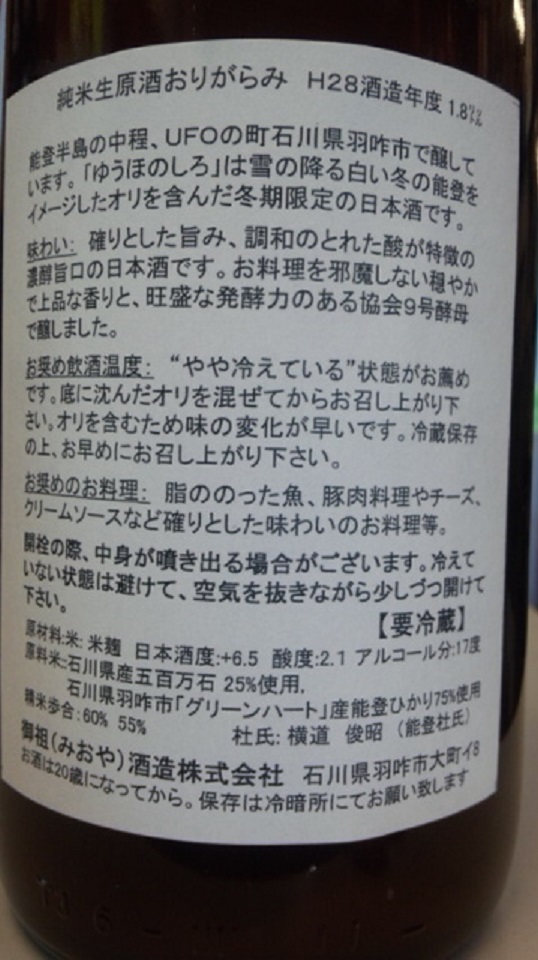 純米生原酒おりがらみ H28酒造年度 1.8㍑
能登半島の中程、UFOの町石川県羽咋市で醸して
います。「ゆうほのしろ」は雪の降る白い冬の能登を
イメージしたオリを含んだ冬期限定の日本酒です。
味わい: 確りとした旨み、調和のとれた酸が特徴の
濃醇旨口の日本酒です。お料理を邪魔しない穏やか
で上品な香りと、旺盛な発酵力のある協会9号酵母
で醸しました。
お奨め飲酒温度: “やや冷えている”状態がお薦め
です。底に沈んだオリを混ぜてからお召し上がり下
さい。オリを含むため味の変化が早いです。冷蔵保存
の上、お早めにお召し上がり下さい。
お奨めのお料理: 脂ののった魚、豚肉料理やチーズ、
クリームソースなど確りとした味わいのお料理等。
開栓の際、中身が噴き出る場合がございます。冷えて
いない状態は避けて、空気を抜きながら少しづつ開けて
下さい。
【要冷蔵】
原材料:米: 米麹 日本酒度:+6.5 酸度:2.1 アルコール分:17度
原料米:石川県産五百万石 25%使用,
石川県羽咋市「グリーンハート」産能登ひかり75%使用
精米歩合:60% 55% 杜氏: 横道 俊昭 (能登杜氏)
御祖(みおや)酒造株式会社 石川県羽咋市大町イ8
お酒は20歳になってから。保存は冷暗所にてお願い致します